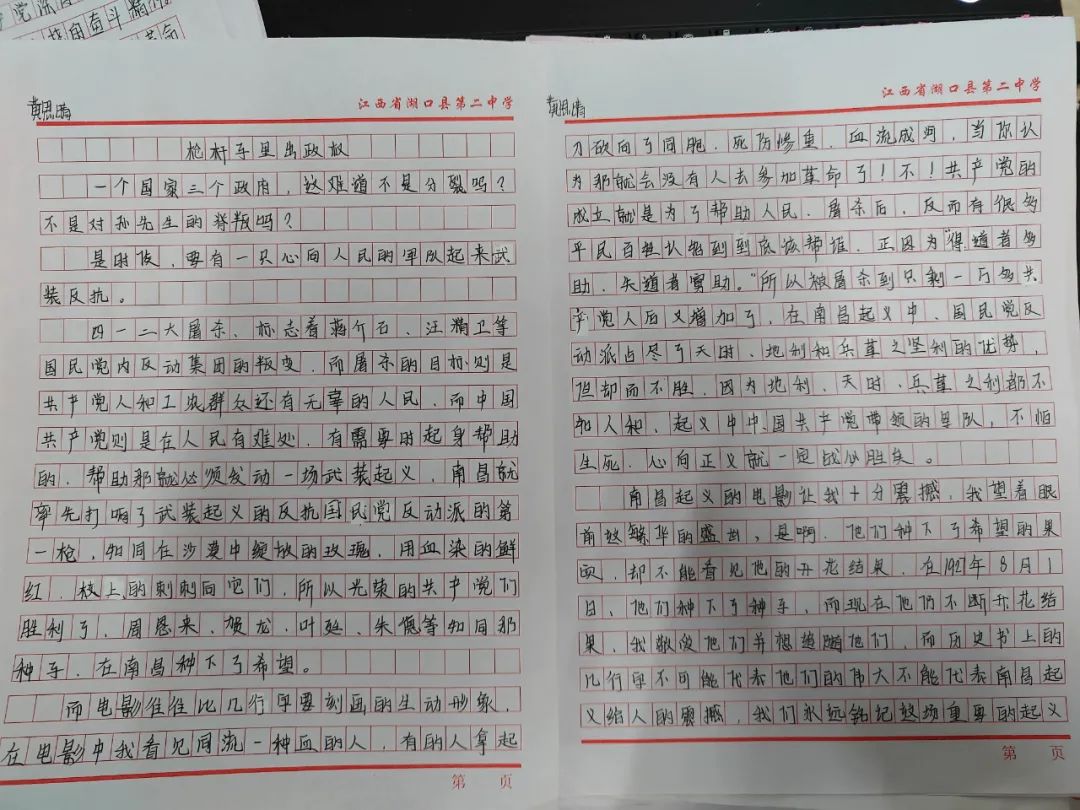 党
奋斗
革命
黄思晴
江西省湖口县第二中学
枪杆子里出政权
一个国家三个政府，这难道不是分裂吗？
不是对孙先生的背叛吗？
是时候，要有一只心向人民的军队起来武
装反抗。
四一二大屠杀、标志着蒋介石、汪精卫等
国民党内反动集团的叛变，而屠杀的目标则是
共产党人和工农群众还有无辜的人民，而中国
共产党则是在人民有难处，有需要时起身帮助
的，帮助那就必须发动一场武装起义，南昌就
率先打响了武装起义的反抗国民党反动派的第
一枪，如同在沙漠中绽放的玫瑰，用血染的鲜
红，枝上的刺刺向它们，所以光荣的共产党们
胜利了，周恩来、贺龙、叶挺、朱德等如同那
种子，在南昌种下了希望。
而电影往往比几行字要刻画的生动形象，
在电影中我看见同流一种血的人，有的人拿起
第 页
黄思晴
江西省湖口县第二中学
刀砍向了同胞，死伤惨重，血流成河，当你认
为那就会没有人去参加革命了！不！共产党的
成立就是为了帮助人民，屠杀后，反而有很多
平民百姓认识到到底该帮谁，正因为“得道者多
助，失道者寡助。”所以被屠杀到只剩一万多共
产党人后又增加了，在南昌起义中，国民党反
动派占尽了天时、地利和兵革之坚利的优势，
但却而不胜，因为地利、天时、兵革之利都不
如人和，起义中中国共产党带领的军队，不怕
生死，心向正义就一定战必胜矣。
南昌起义的电影让我十分震撼，我望着眼
前这繁华的盛世，是啊，他们种下了希望的果
实，却不能看见他的开花结果，在1927年8月1
日，他们种下了种子，而现在他仍不断开花结
果，我敬佩他们并想追随他们，而历史书上的
几行字不可能代表他们的伟大不能代表南昌起
义给人的震撼，我们永远铭记这场重要的起义
第 页